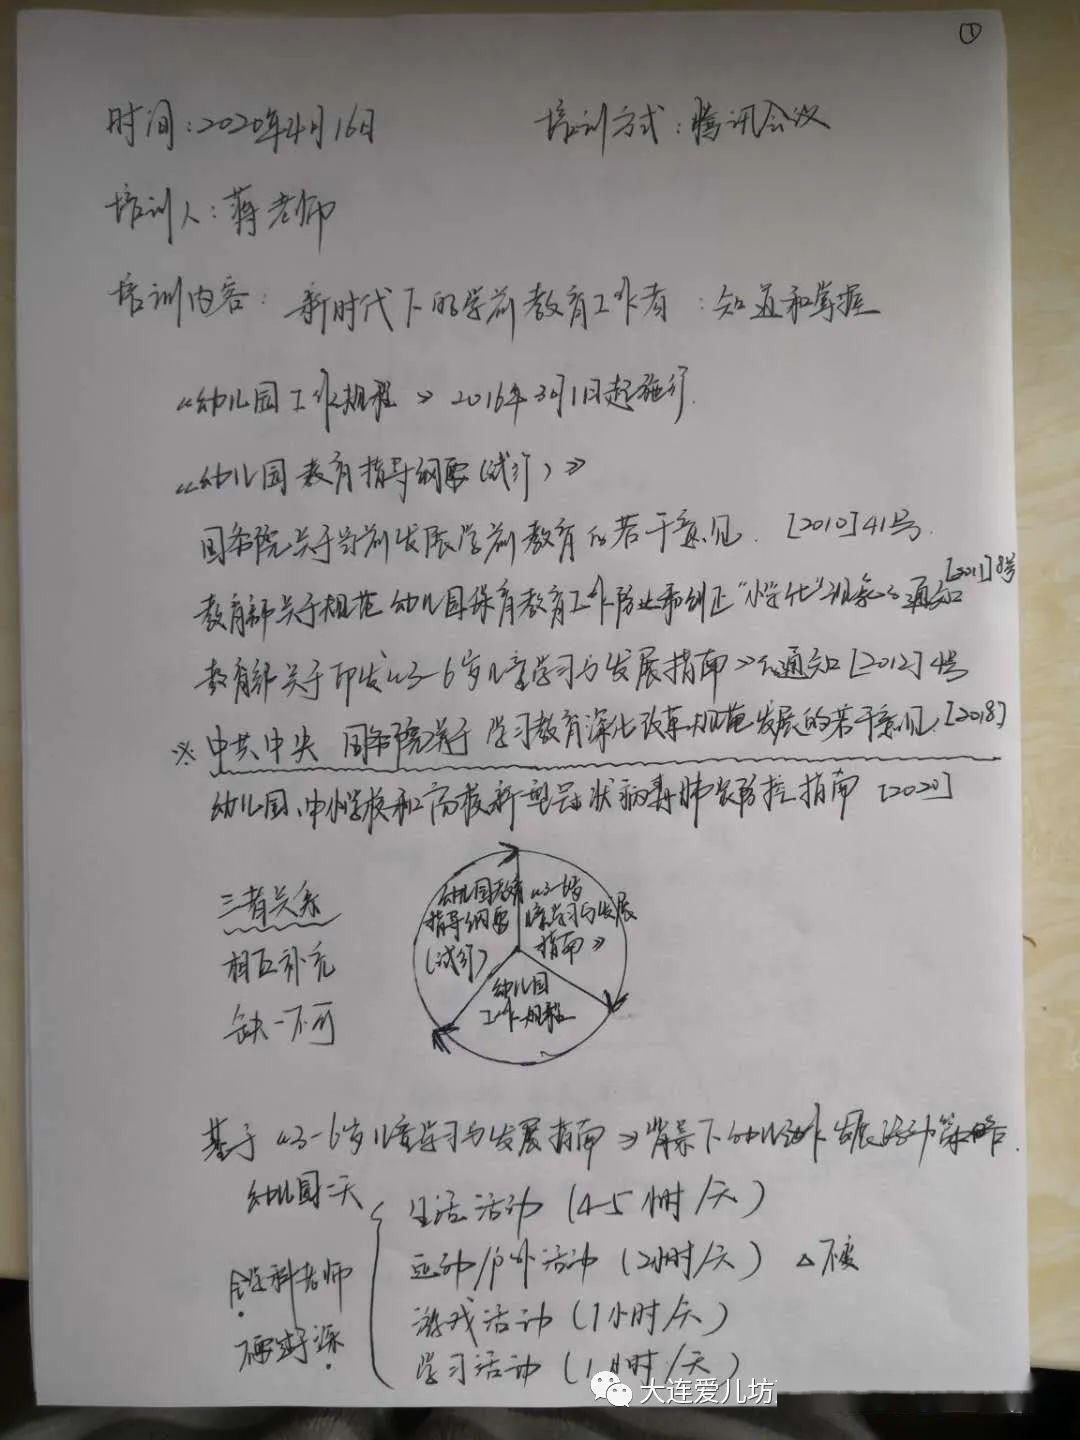 ①
时间：2020年4月16日 培训方式：腾讯会议
培训人：蒋老师
培训内容：新时代下的学前教育工作者：知道和掌握
《幼儿园工作规程》2016年3月1日起施行.
《幼儿园教育指导纲要(试行)》
国务院关于当前发展学前教育的若干意见.[2010]41号.
教育部关于规范幼儿园保育教育工作防止和纠正“小学化”现象的通知[2011]8号
教育部关于印发《3-6岁儿童学习与发展指南》的通知[2012]4号
※中共中央 国务院关于学习教育深化改革规范发展的若干意见[2018]
幼儿园、中小学校和高校新型冠状病毒肺炎防控指南[2020]
三者关系
相互补充
缺一不可
幼儿园教育指导纲要(试行)
《3-6岁儿童学习与发展指南》
幼儿园工作规程
基于《3-6岁儿童学习与发展指南》背景下幼儿发展活动策略.
幼儿园一天
生活活动(4-5小时/天)
运动/户外活动(2小时/天) △不变
游戏活动(1小时/天)
学习活动(1小时/天)
全学科老师
大连爱儿坊